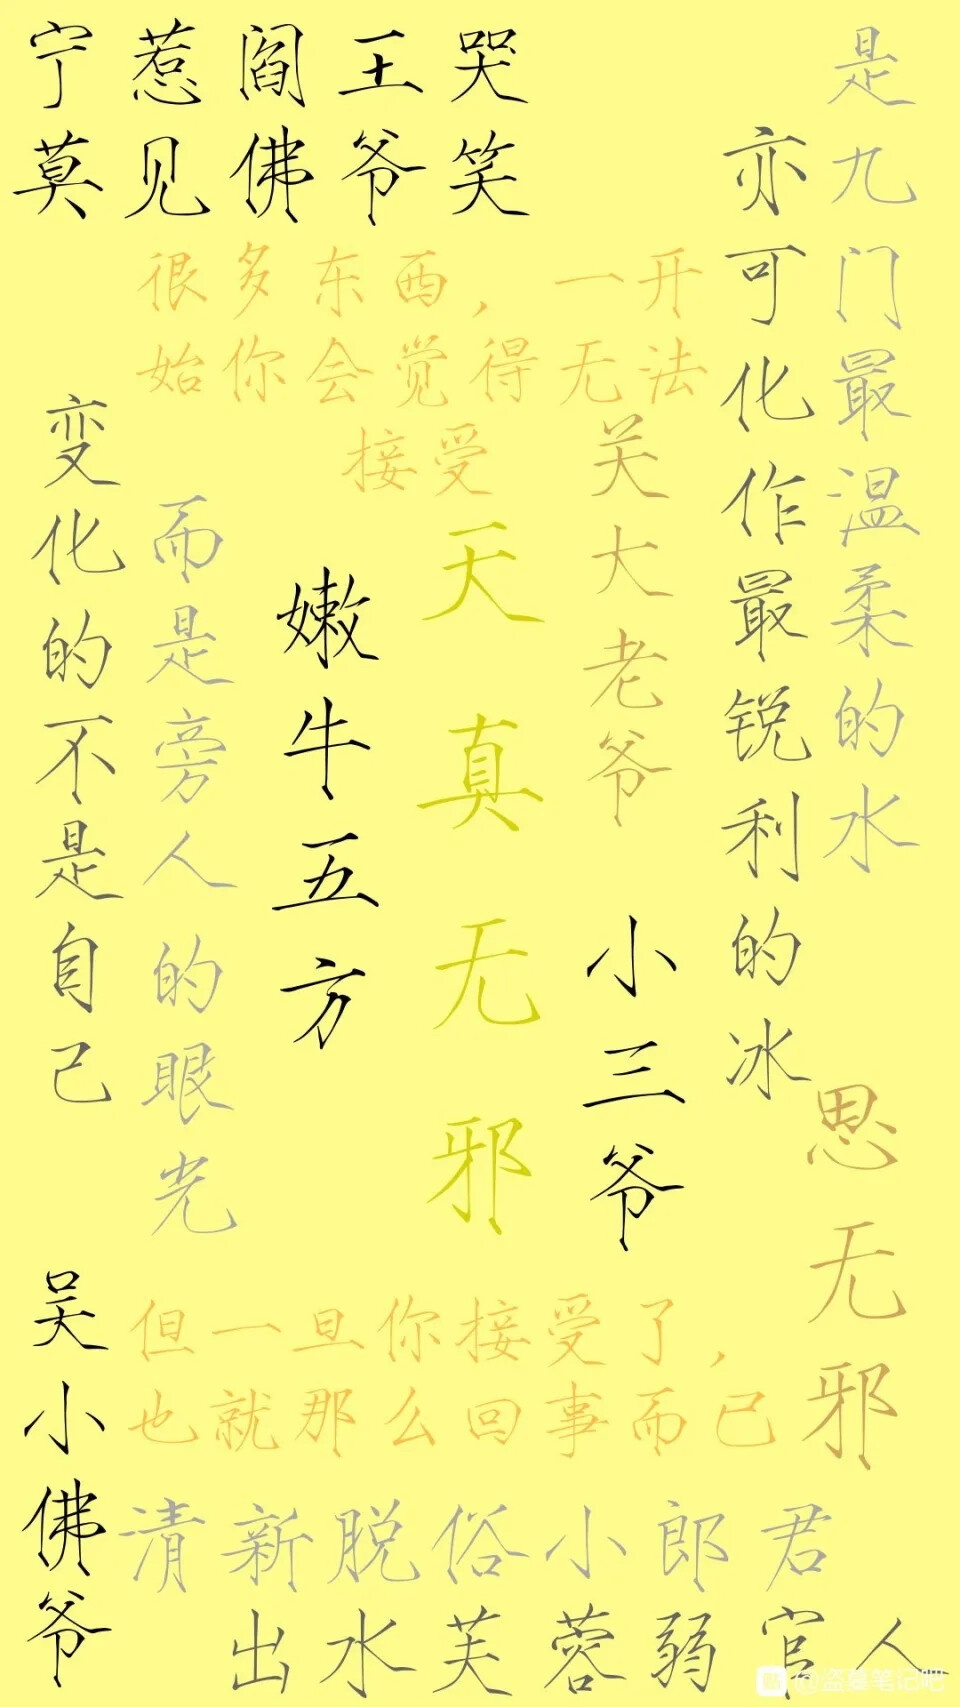 宁惹阎王哭
莫见佛爷笑
是九门最温柔的水
亦可化作最锐利的冰
很多东西，一开
始你会觉得无法
接受
关大老爷
天真无邪
嫩牛五方
变化的不是自己
而是旁人的眼光
小三爷
思无邪
吴小佛爷
但一旦你接受了，
也就那么回事而已
清新脱俗小郎君
出水芙蓉弱官人
@盗墓笔记吧